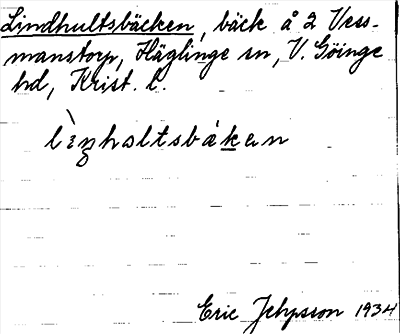 Lindhultsbäcken, bäck å 2 Vess-
manstorp, Häglinge sn, V. Göinge
hd, Krist. l.
Eric Jepsson 1934